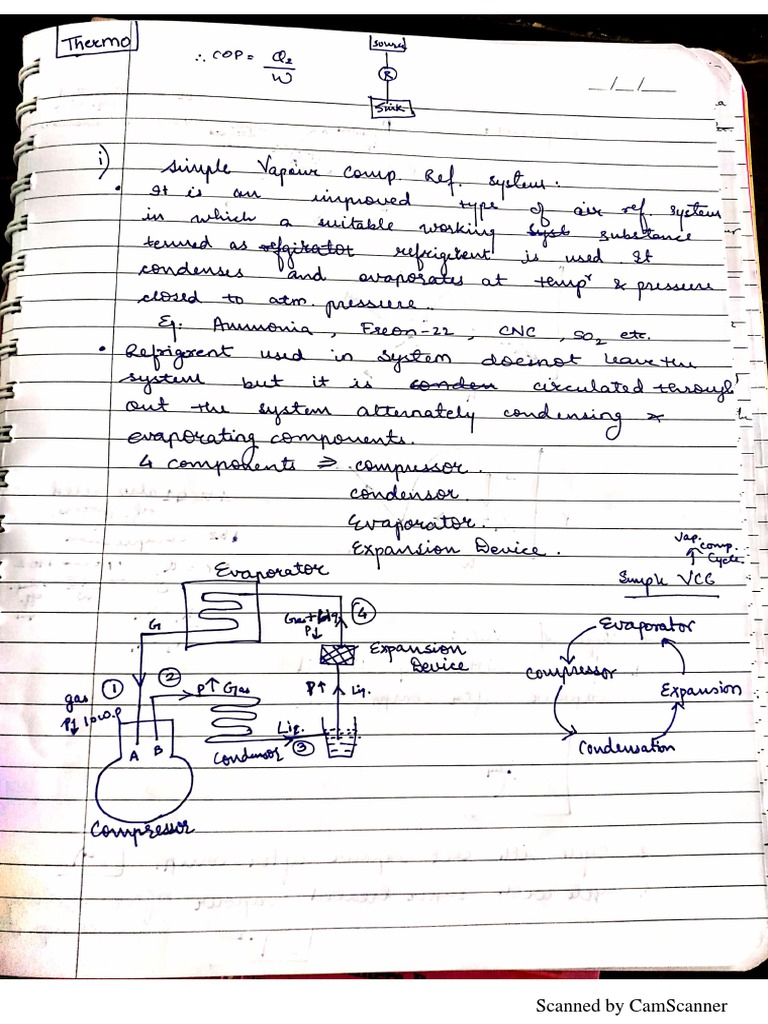 Thermo
∴ COP = Q2/W
source
R
Sink
_/_/_
i) Simple Vapour Comp. Ref. system:
• It is an improved type of air ref. system
in which a suitable working syst substance
termed as refgirator refrigerent is used. It
condenses and evaporates at tempr & pressure
closed to atm. pressure.
Eg. Ammonia, Freon-22, CNC, SO2 etc.
• Refrigerent used in system doesnot leave the
system but it is conden circulated through
out the system alternately condensing &
evaporating components.
4 components ⇒ compressor.
condensor.
Evaporator.
Expansion Device.
Vap. comp. Cycle
Simple VCC
Evaporator
G
Gas + liq.
P↓
4
Expansion
Device
1
gas
P↓
2
P↑ Gas
P↑ Liq.
Liq.
3
A B
Condensor
Compressor
Evaporator
Compressor
Expansion
Condensation
Scanned by CamScanner